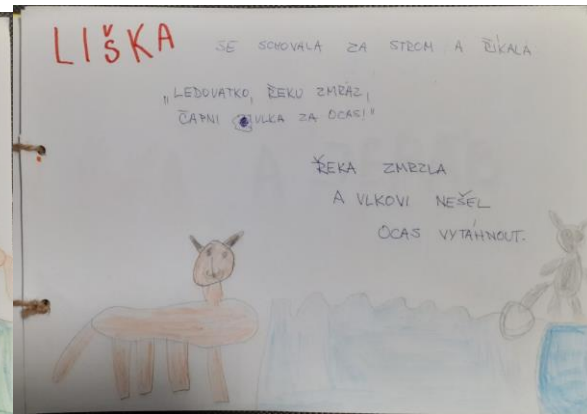 LIŠKA SE SCHOVALA ZA STROM A ŘÍKALA
„LEDOVATKO, ŘEKU ZMRAZ,
ČAPNI VLKA ZA OCAS!"
ŘEKA ZMRZLA
A VLKOVI NEŠEL
OCAS VYTÁHNOUT.